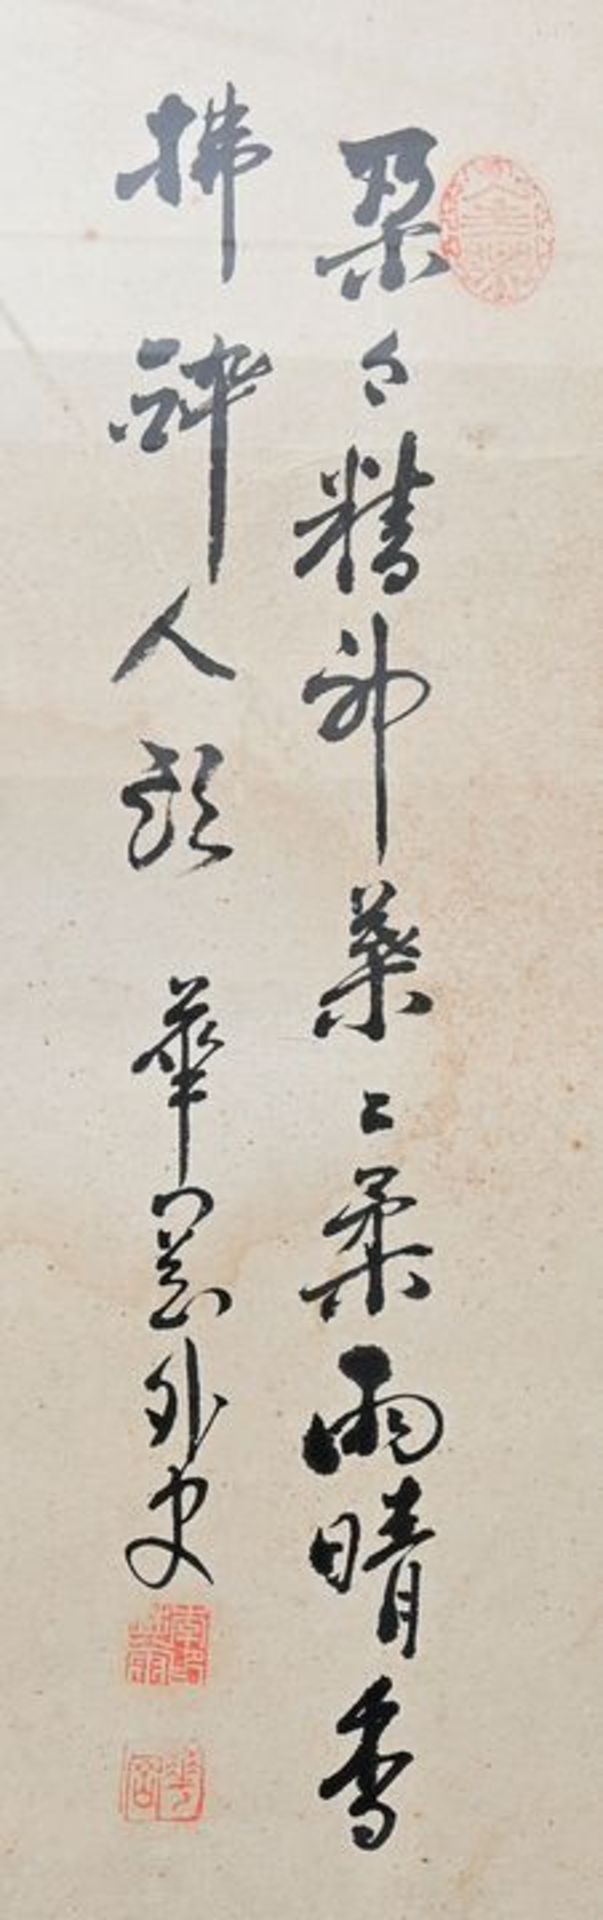 朶々精神葉々柔雨晴香
拂酔人頭 華岡外史